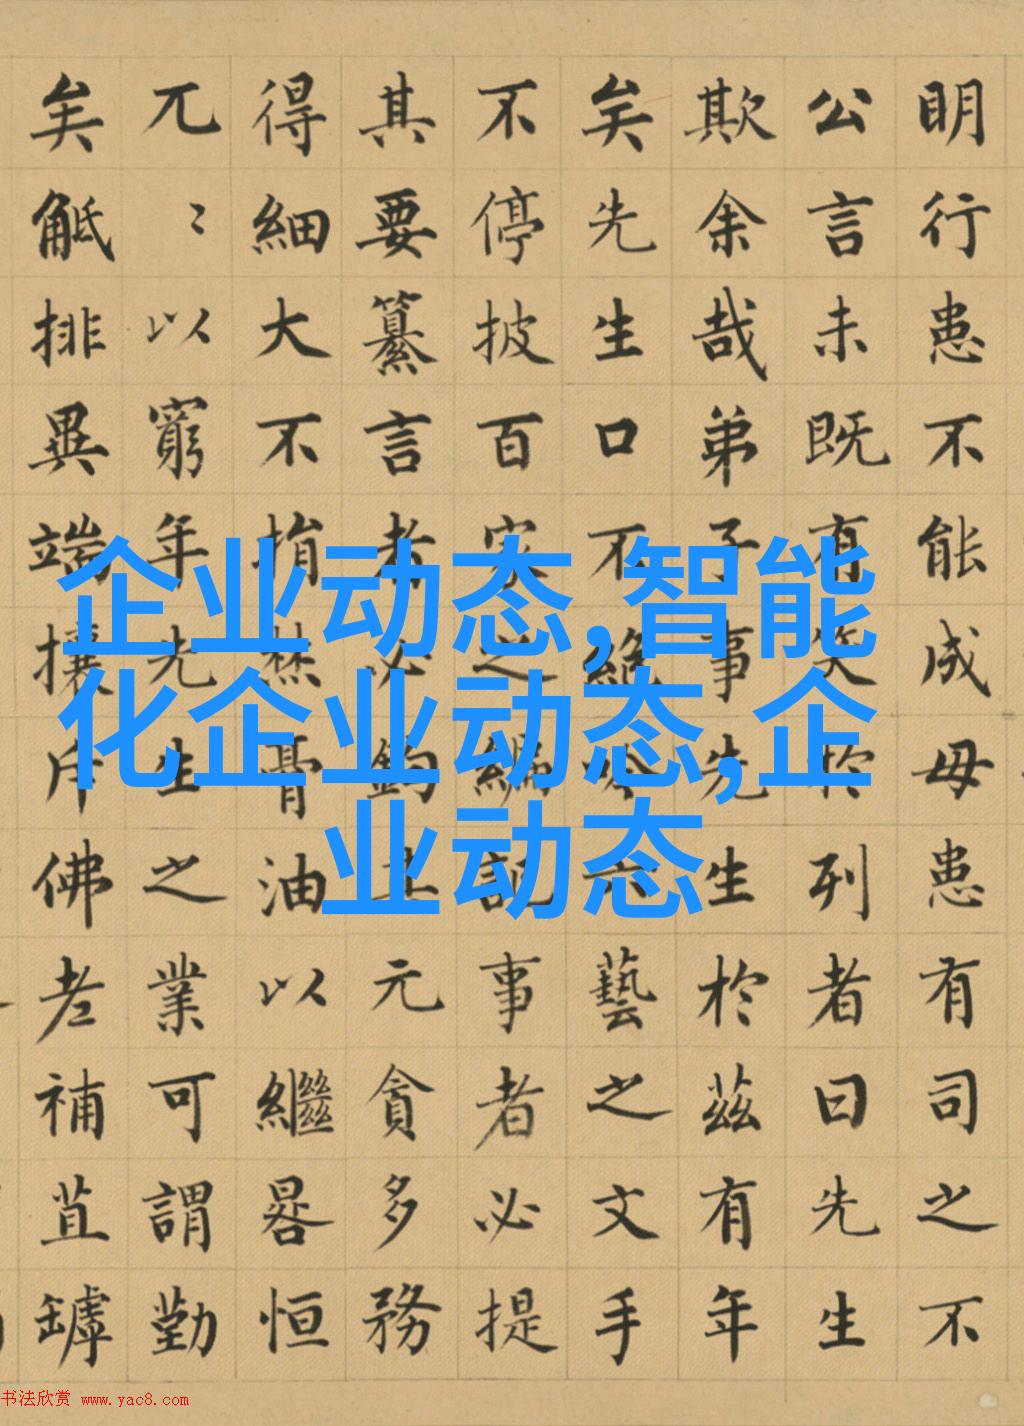 明行患不能成毋患有司之不
公言未既有笑於列者曰先生
欺余哉弟子事先生於茲有年
矣先生口不絕吟六藝之文手
不停披百家之編記事者必提
其要纂言者必鈎元貪多務
得細大不捐焚膏油以繼晷恒
兀〻以窮年先生之業可謂勤
矣觝排異端攘斥佛老補苴罅
企业动态,智能
化企业动态,企
业动态
书法欣赏 www.yac8.com